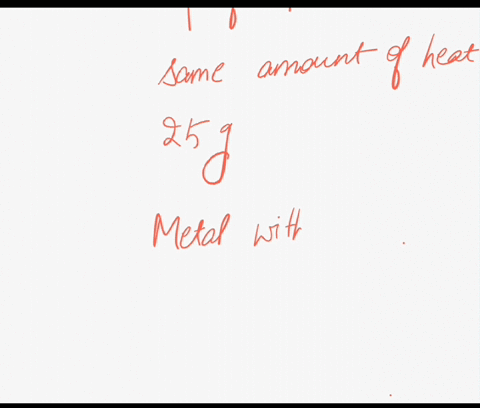 same amount of heat
25 g
Metal with